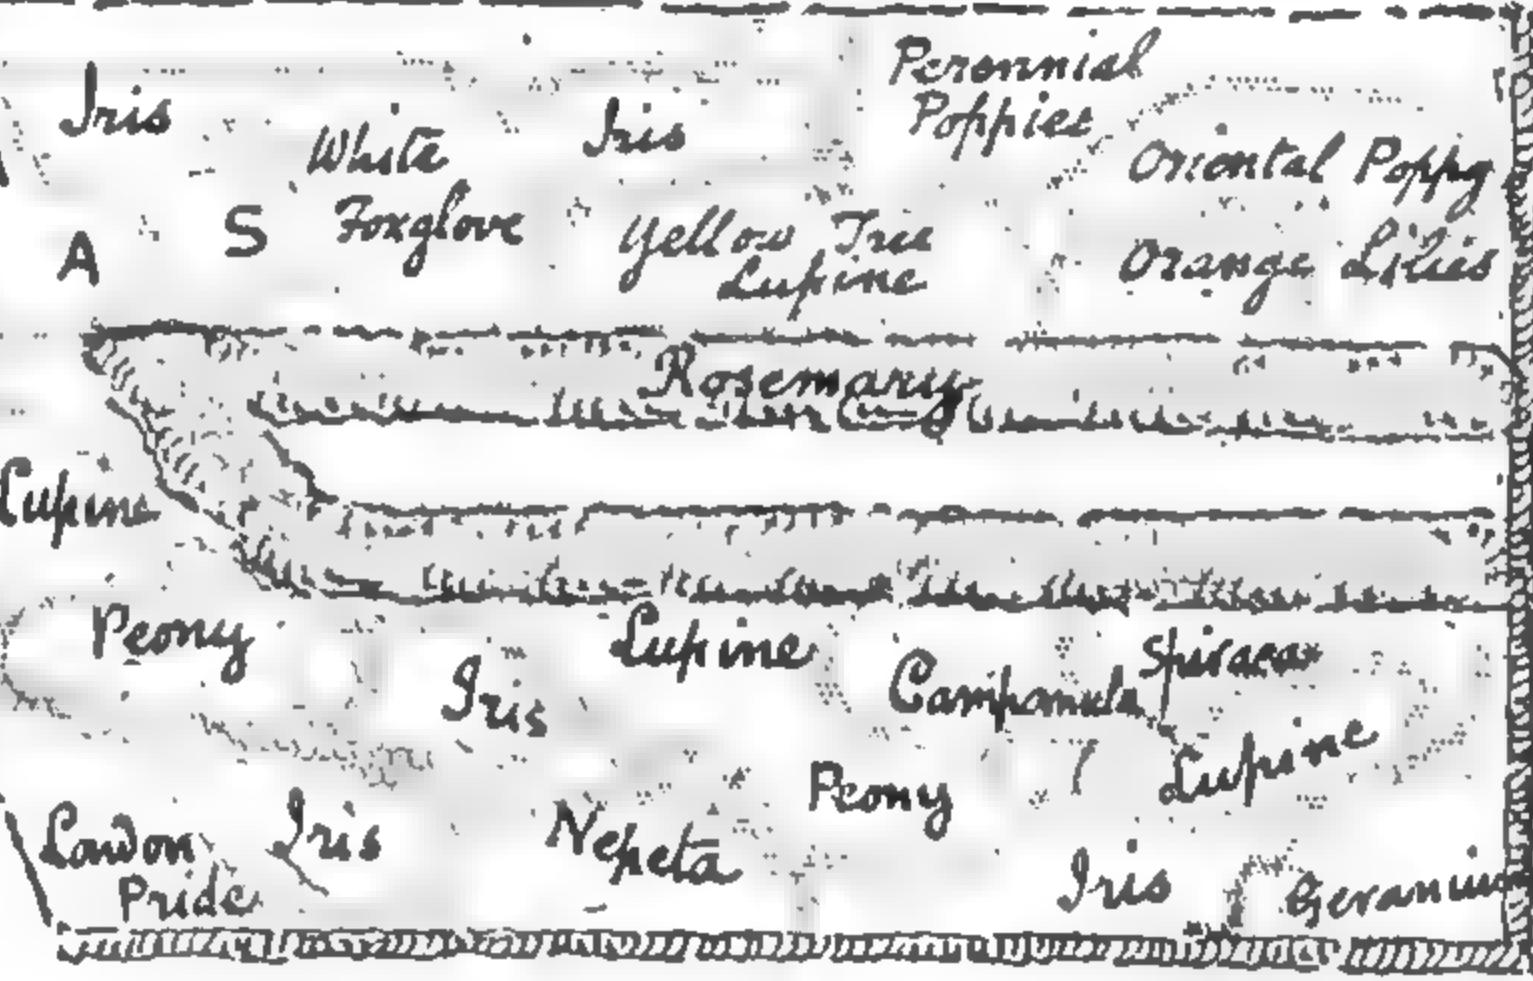 Iris
White
Foxglove
Iris
Perennial
Poppies
Oriental Poppy
A
S
Yellow Tree
Lupine
Orange Lilies
Rosemary
Lupine
Peony
Iris
Lupine
Campanula
Spiraeas
Lupine
Peony
London
Pride
Iris
Nepeta
Iris
Geranium